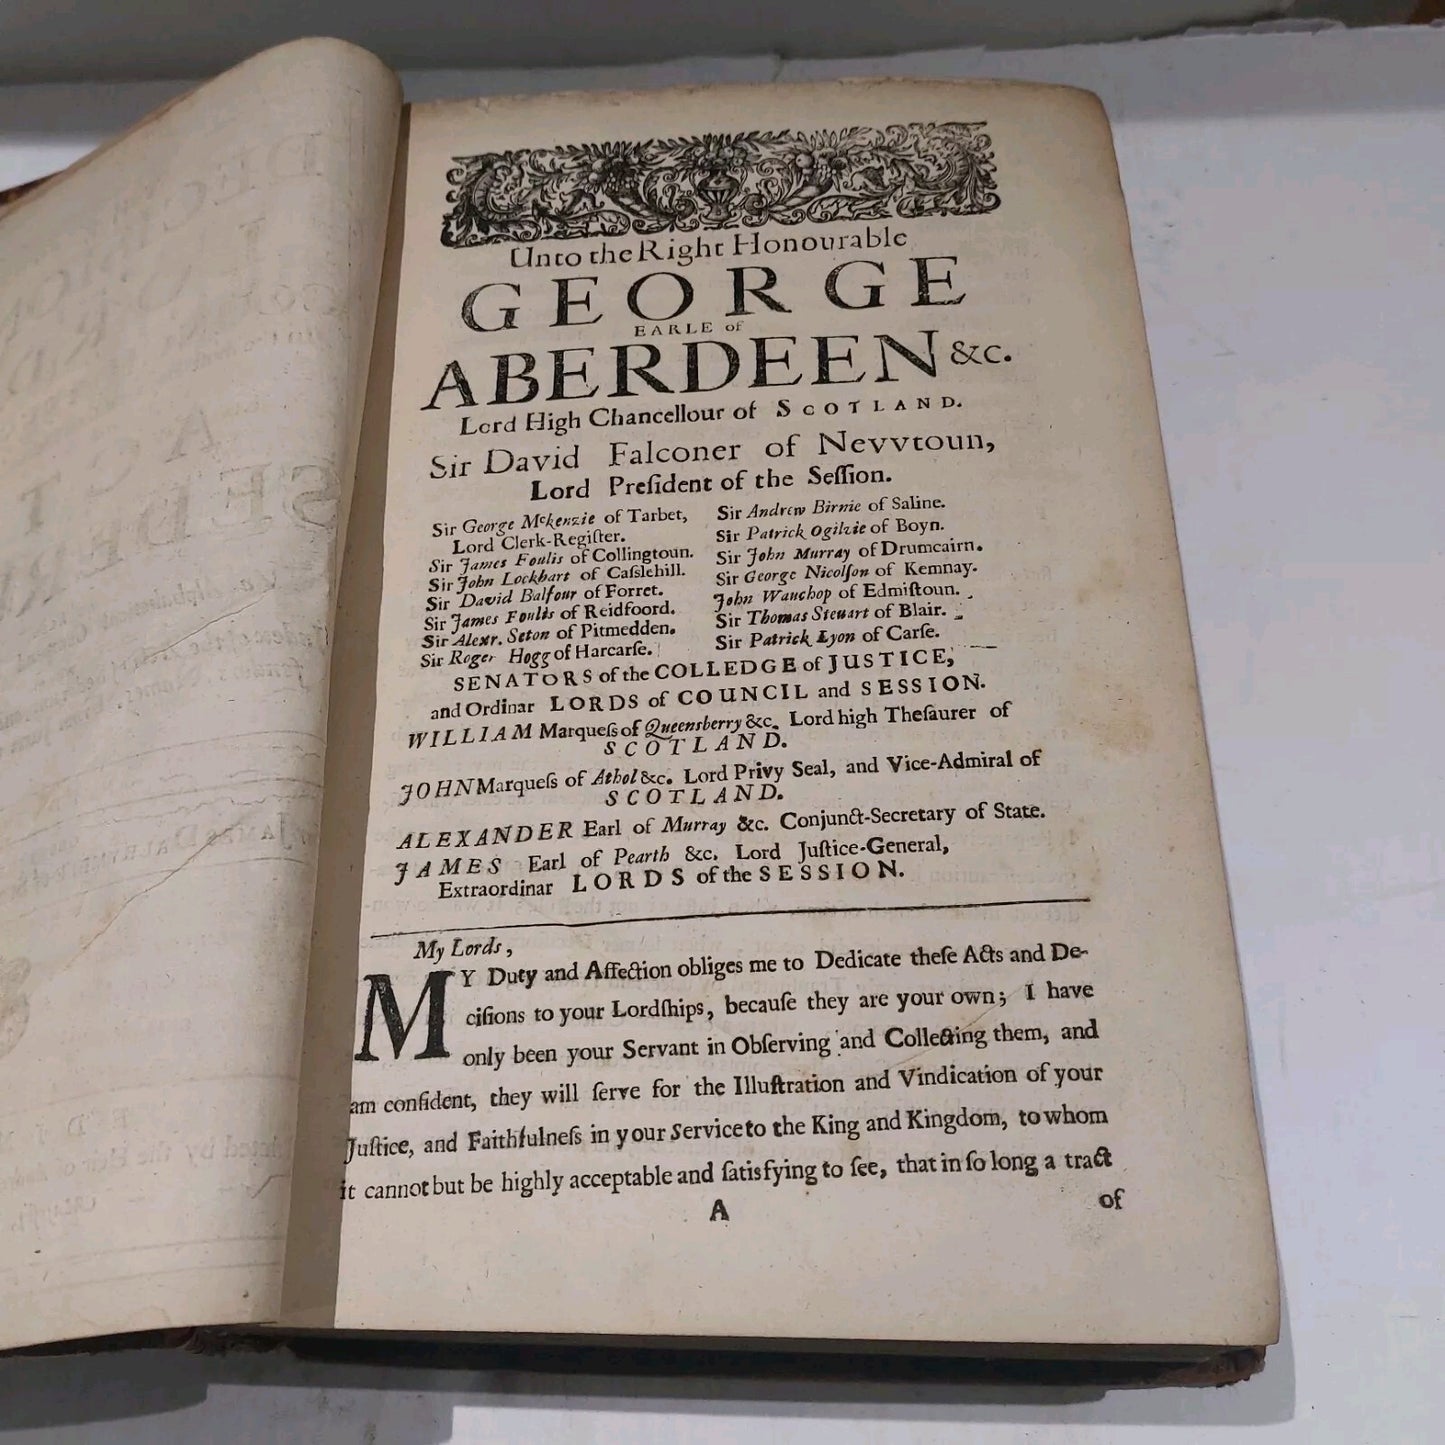 Unto the Right Honourable
GEORGE
EARLE of
ABERDEEN &c.
Lord High Chancellour of SCOTLAND.
Sir David Falconer of Nevvtoun,
Lord Preſident of the Seſſion.
Sir George Mckenzie of Tarbet,
Lord Clerk-Regiſter.
Sir James Foulis of Collingtoun.
Sir John Lockhart of Caſslehill.
Sir David Balfour of Forret.
Sir James Foulis of Reidfoord.
Sir Alexr. Seton of Pitmedden.
Sir Roger Hogg of Harcarſe.
Sir Andrew Birnie of Saline.
Sir Patrick Ogilvie of Boyn.
Sir John Murray of Drumcairn.
Sir George Nicolſon of Kemnay.
John Wauchop of Edmiſtoun.
Sir Thomas Steuart of Blair.
Sir Patrick Lyon of Carſe.
SENATORS of the COLLEDGE of JUSTICE,
and Ordinar LORDS of COUNCIL and SESSION.
WILLIAM Marqueſs of Queensberry &c. Lord high Theſaurer of
SCOTLAND.
JOHN Marqueſs of Athol &c. Lord Privy Seal, and Vice-Admiral of
SCOTLAND.
ALEXANDER Earl of Murray &c. Conjunct-Secretary of State.
JAMES Earl of Pearth &c. Lord Juſtice-General,
Extraordinar LORDS of the SESSION.
My Lords,
MY Duty and Affection obliges me to Dedicate theſe Acts and De-
ciſions to your Lordſhips, becauſe they are your own; I have
only been your Servant in Obſerving and Collecting them, and
am confident, they will ſerve for the Illuſtration and Vindication of your
Juſtice, and Faithfulneſs in your Service to the King and Kingdom, to whom
it cannot but be highly acceptable and ſatisfying to ſee, that in ſo long a tract
A of